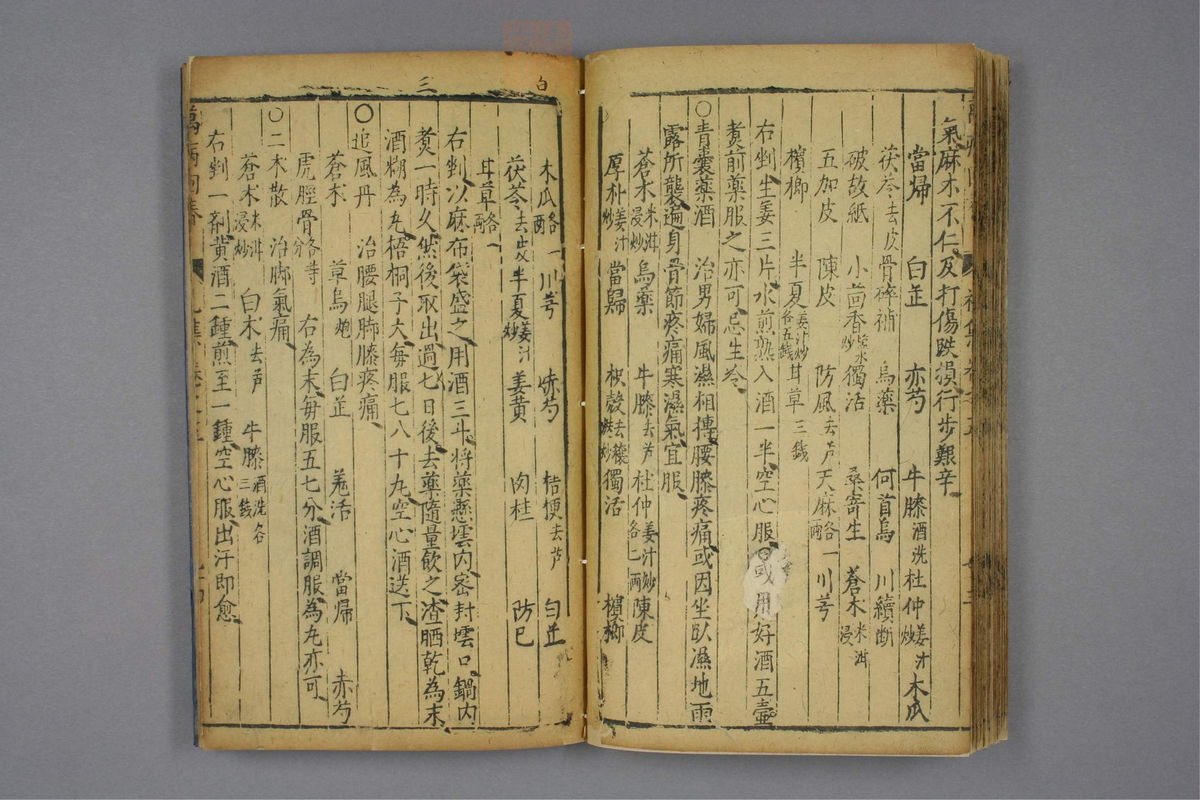 氣麻木不仁及打傷跌損行步艱辛
當歸 白芷 赤芍 牛膝酒洗 杜仲姜汁炒 木瓜
茯苓去皮 骨碎補 烏藥 何首烏 川續斷
破故紙 小茴香鹽水炒 獨活 桑寄生 蒼木米泔浸
五加皮 陳皮 防風去芦 天麻各一兩 川芎
檳榔 半夏姜汁炒各五錢 甘草三錢
右剉生姜三片水煎熟入酒一半空心服或用好酒五壷
煑前藥服之亦可忌生冷
○青囊藥酒 治男婦風濕相摶腰膝疼痛或因坐臥濕地雨
露所襲遍身骨節疼痛寒濕氣宜服
蒼木米泔浸炒 烏藥 牛膝去芦 杜仲姜汁炒各二兩 陳皮
厚朴姜汁炒 當歸 枳殼去穰麩炒 獨活 檳榔
三
白
木瓜各一兩 川芎 赤芍 桔梗去芦 白芷
茯苓去皮 半夏姜汁炒 姜黄 肉桂 防已
甘草各一兩
右剉以麻布袋盛之用酒三斗將藥懸墰内密封墰口鍋内
煑一時久然後取出過七日後去藥隨量飲之渣晒乾為末
酒糊為丸梧桐子大每服七八十丸空心酒送下
○追風丹 治腰腿脚膝疼痛
蒼朮 草烏炮 白芷 羗活 當歸 赤芍
虎脛骨各等分 右為末每服五七分酒調服為丸亦可
○二木散 治脚氣痛
蒼朮米泔浸炒 白木去芦 牛膝酒洗各三錢
右剉一剤黄酒二鍾煎至一鍾空心服出汗即愈
萬病回春